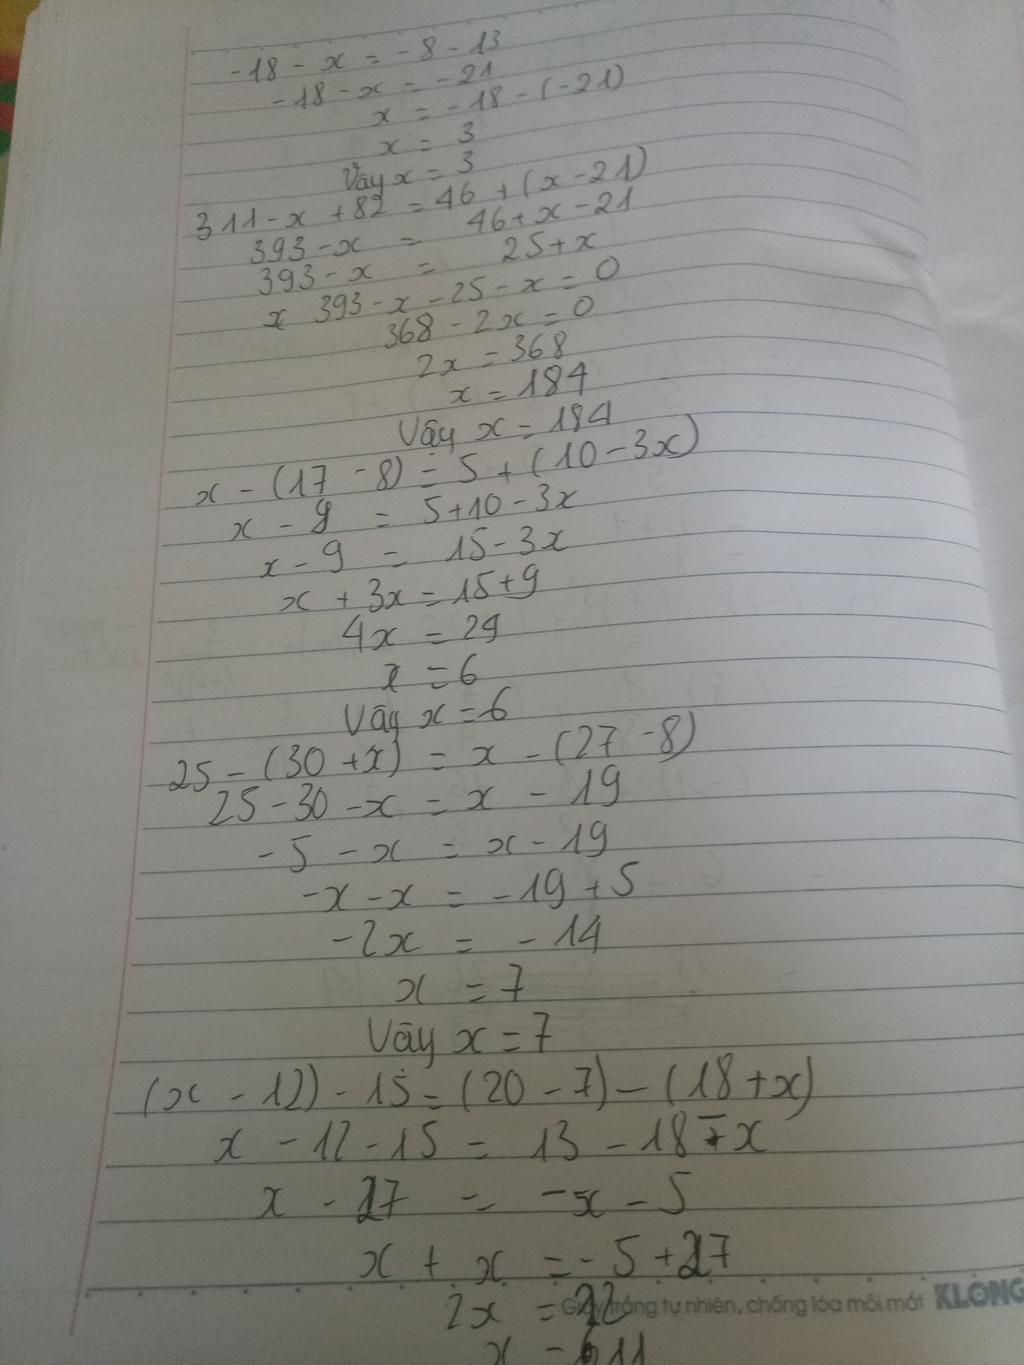 -18 - x = -8 - 13
-18 - x = -21
x = -18 - (-21)
x = 3
Vậy x = 3
311 - x + 82 = 46 + (x - 21)
393 - x = 46 + x - 21
393 - x = 25 + x
x 393 - x - 25 - x = 0
368 - 2x = 0
2x = 368
x = 184
Vậy x = 184
x - (17 - 8) = 5 + (10 - 3x)
x - 9 = 5 + 10 - 3x
x - 9 = 15 - 3x
x + 3x = 15 + 9
4x = 29
x = 6
Vậy x = 6
25 - (30 + x) = x - (27 - 8)
25 - 30 - x = x - 19
-5 - x = x - 19
-x - x = -19 + 5
-2x = -14
x = 7
Vậy x = 7
(x - 12) - 15 = (20 - 7) - (18 + x)
x - 12 - 15 = 13 - 18 - x
x - 27 = -x - 5
x + x = -5 + 27
2x = 22
Giấy trắng tự nhiên, chống lóa mỏi mắt KLONG
x = 11